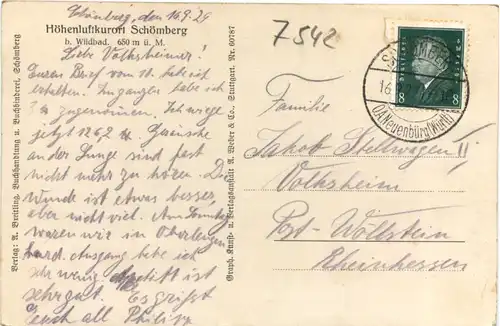 Schömberg, den 16.9.29
Höhenluftkurort Schömberg
b. Wildbad. 650 m ü. M.
Liebe Volksheimer!
Euren Brief vom 11. hab ich
erhalten. Zugangen habe ich
3 ℔ zugenommen. Ich wiege
jetzt 126 ℔. Geräusche
an der Lunge sind fast
nicht mehr zu hören. Die
Wunde ist etwas besser,
aber nicht viel. Am Sonntag
waren wir in Oberlengen-
hard. Ausgang habe ich
sehr wenig Appetit ist
sehr gut. Es grüßt
Euch all Philipp
Verlag: A. Breitling, Buchhandlung u. Buchbinderei, Schömberg
Graph. Kunst- u. Verlagsanstalt A. Weber & Co., Stuttgart. Nr. 60787
7542
DEUTSCHES REICH
8 8
SCHÖMBERG
16.
(OA Neuenbürg (Württ)
Familie
Jakob Stellwagen II
Volksheim
Post-Wöllstein
Rheinhessen